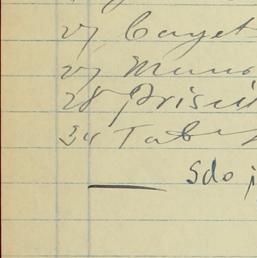 27 Cayet
27 Muno
28 Prisci
34 Tab
Sdo j